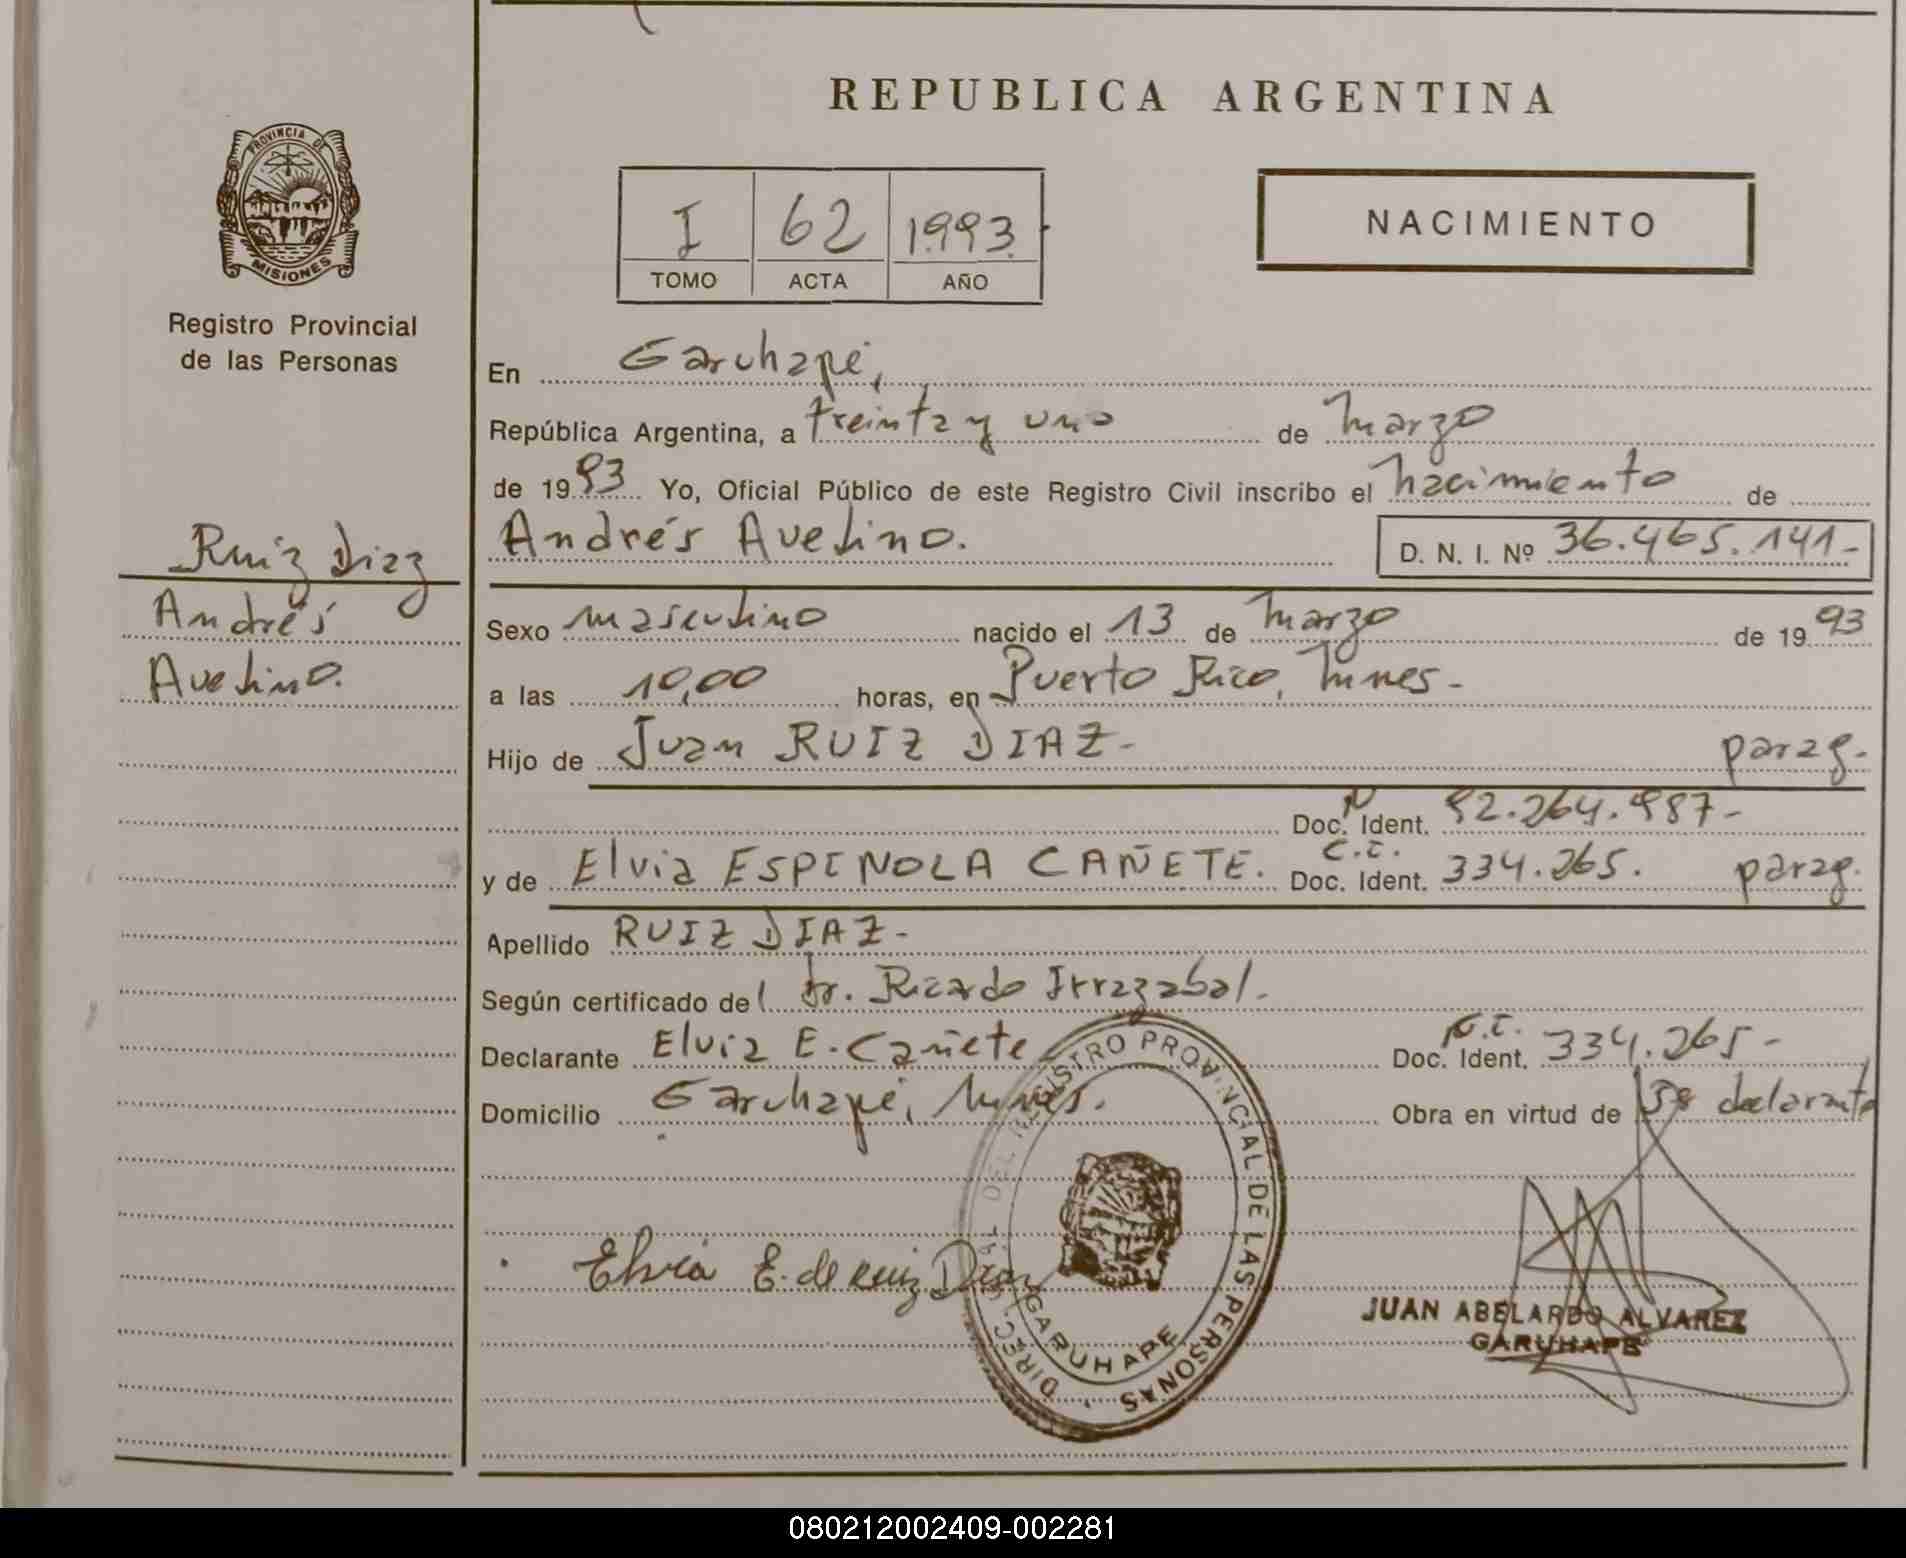 REPUBLICA ARGENTINA
PROVINCIA DE
MISIONES
Registro Provincial
de las Personas
Ruiz Diaz
Andrés
Avelino.
I 62 1993.
TOMO ACTA AÑO
NACIMIENTO
En Garuhapé,
República Argentina, a treinta y uno de marzo
de 1993 Yo, Oficial Público de este Registro Civil inscribo el nacimiento de
Andrés Avelino. D. N. I. Nº 36.465.141-
Sexo masculino nacido el 13 de marzo de 1993
a las 10,00 horas, en Puerto Rico, Mnes-
Hijo de Juan RUIZ DIAZ- parag.
Doc. Ident. 92.264.987-
y de Elvia ESPINOLA CAÑETE. C.I. Doc. Ident. 334.265. parag.
Apellido RUIZ DIAZ-
Según certificado del Dr. Ricardo Irrazabal-
Declarante Elvia E. Cañete Doc. Ident. 334.265-
Domicilio Garuhapé, Mnes. Obra en virtud de declarante
Elvia E. de Ruiz Diaz
DIREC. GRAL. DEL REGISTRO PROVINCIAL DE LAS PERSONAS
GARUHAPE
JUAN ABELARDO ALVAREZ
GARUHAPE
080212002409-002281